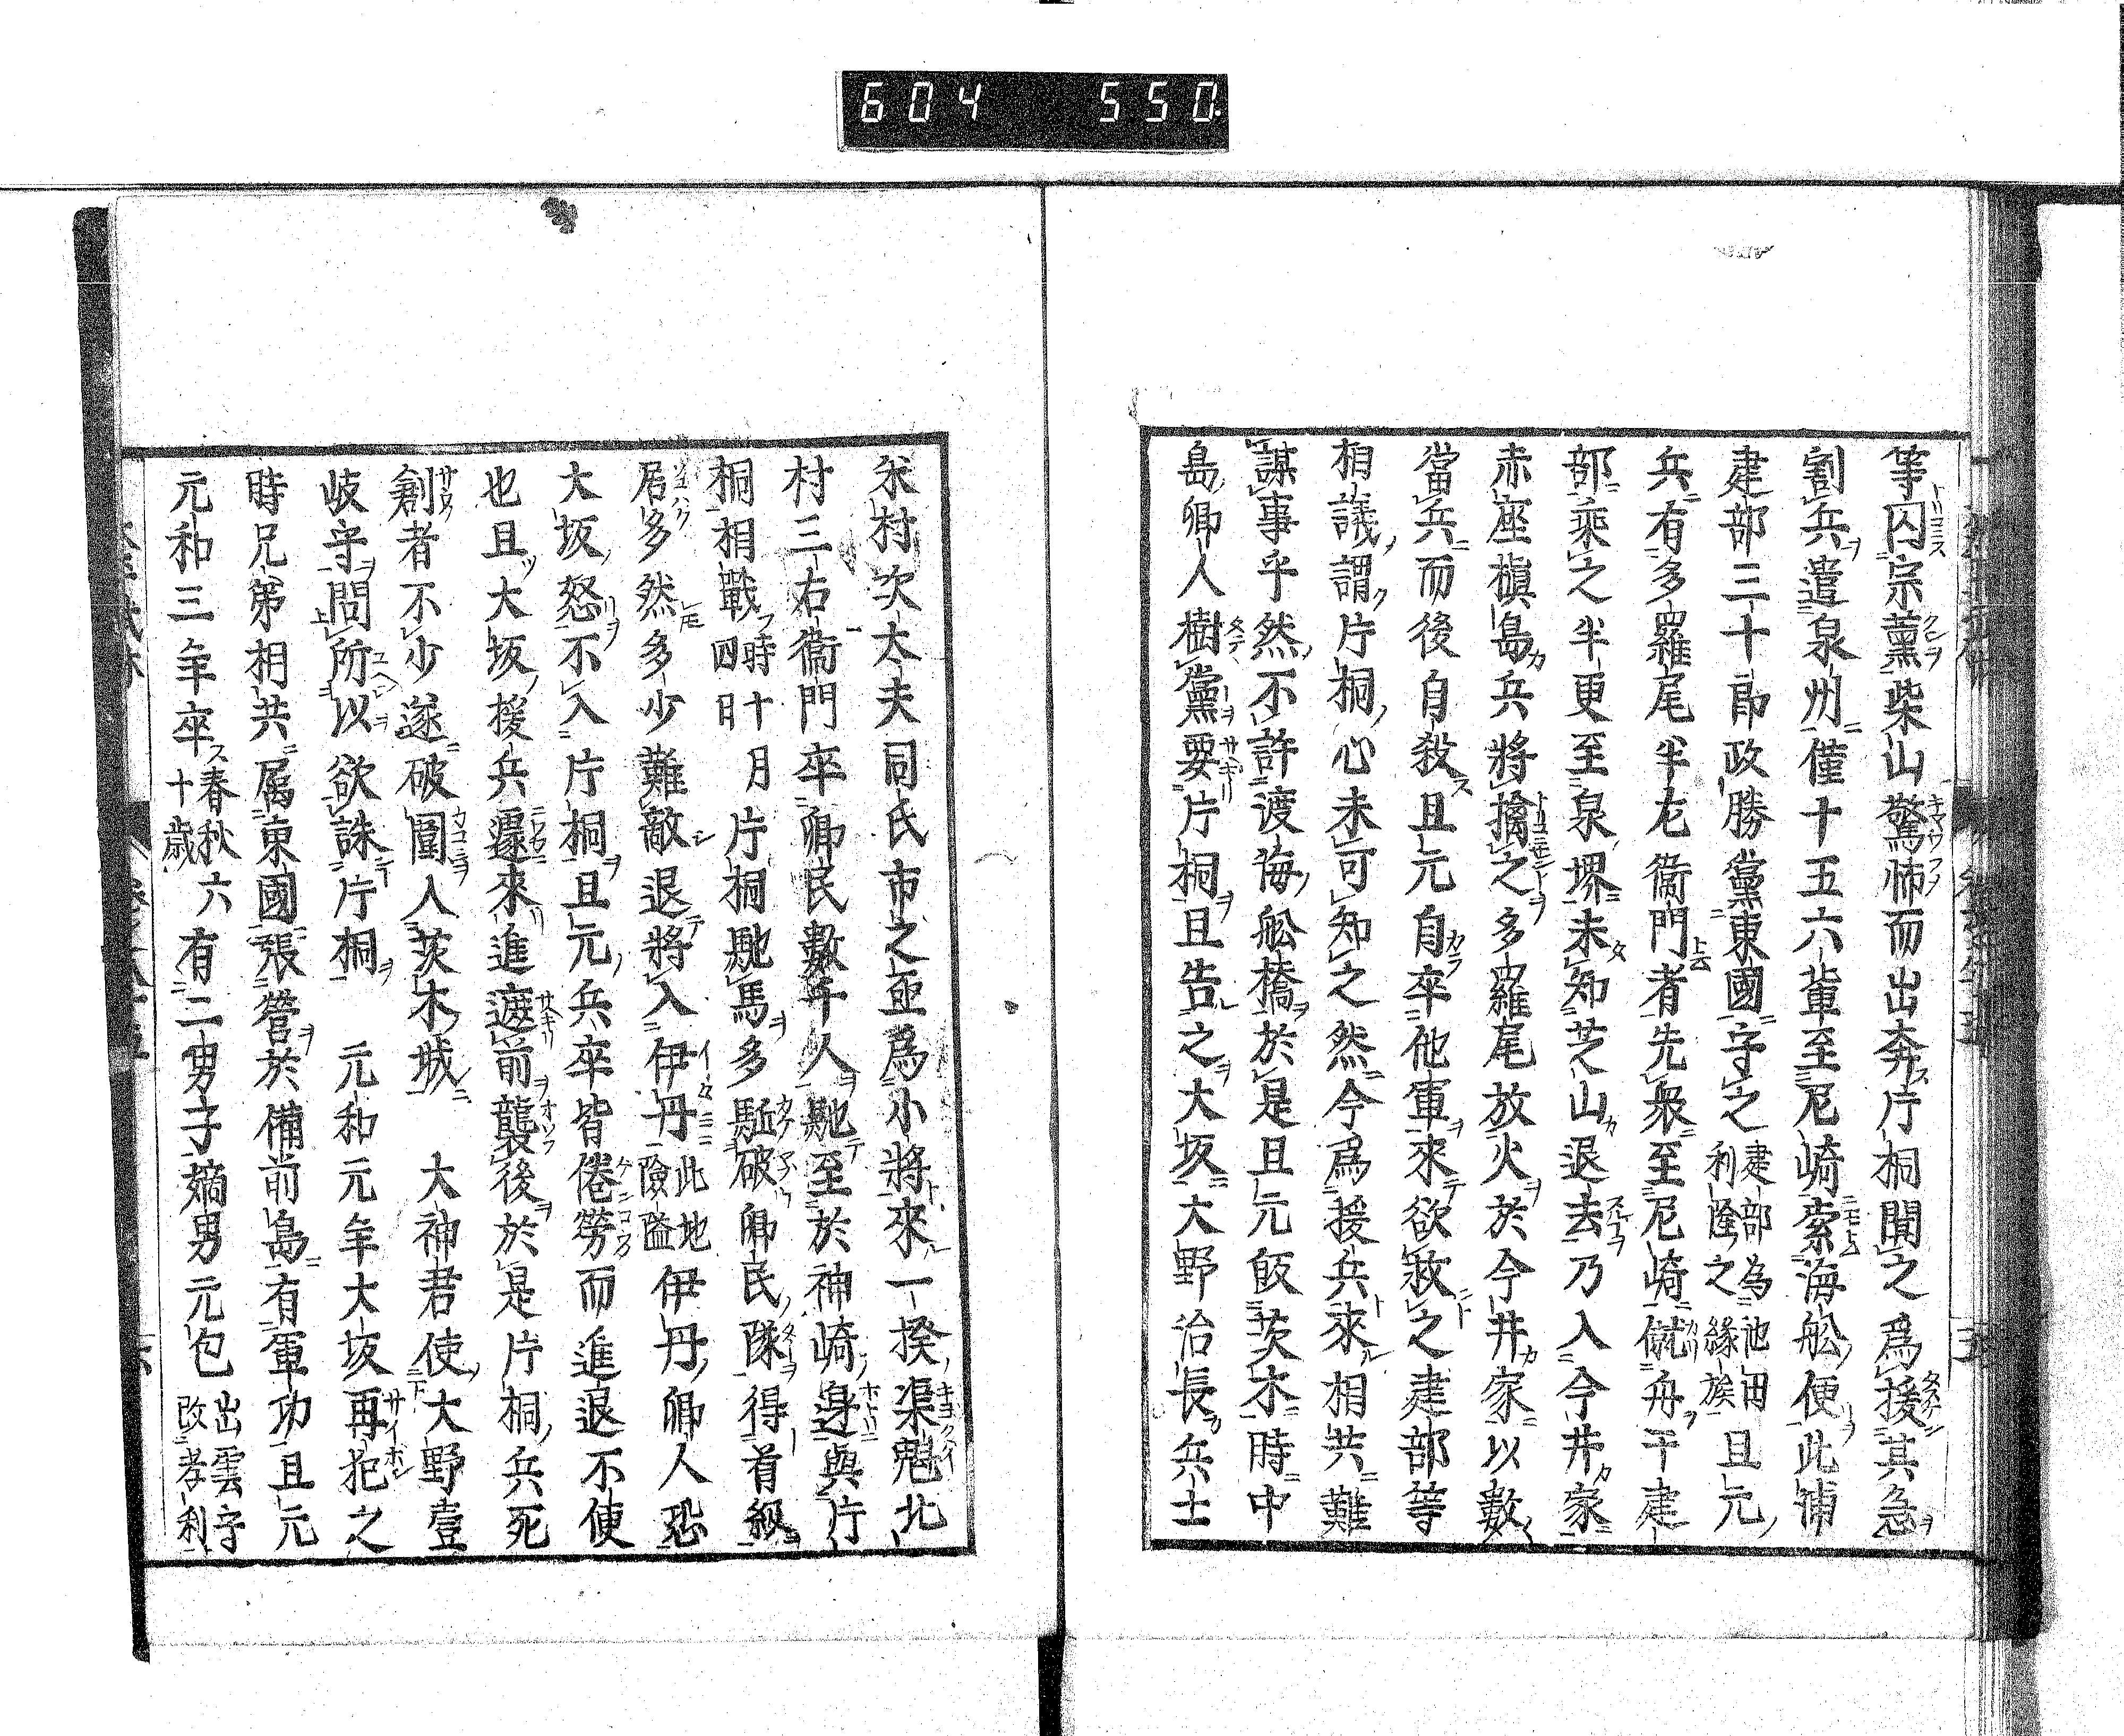 604 550
等囚宗薰柴山驚怖而出奔片桐聞之爲援其急
割兵遣泉州僅十五六輩至尼崎索海舩便此浦
建部三十郎政勝黨東國守之建部為池田利隆之縁族且元
兵有多羅尾半左衞門者先衆至尼崎僦舟干建
部乘之半更至泉堺未知芝山退去乃入今井家
赤座槇島兵將擒之多羅尾放火於今井家以數
當兵而後自殺且元自卒他軍來欲救之建部等
相議謂片桐心未可知之然今爲援兵來相共難
謀事乎然不許渡海舩橋於是且元皈茨木時中
島郷人樹黨要片桐且告之大坂大野治長兵士
米村次太夫同氏市之亟爲小將來一揆渠魁北
村三右衞門卒郷民數千人馳至於神崎邊與片
桐相戰時十月四日片桐馳馬多駈破郷民隊得首級
居多然多少難敵退將入伊丹此地險隘伊丹郷人恐
大坂怒不入片桐且元兵卒皆倦勞而進退不使
也且大坂援兵遽來進遮前襲後於是片桐兵死
創者不少遂破圍入茨木城 大神君使大野壹
岐守問所以欲誅片桐 元和元年大坂再犯之
時兄弟相共属東國張營於備前島有軍功且元
元和三年卒春秋六十歳有二男子嫡男元包出雲守改孝利